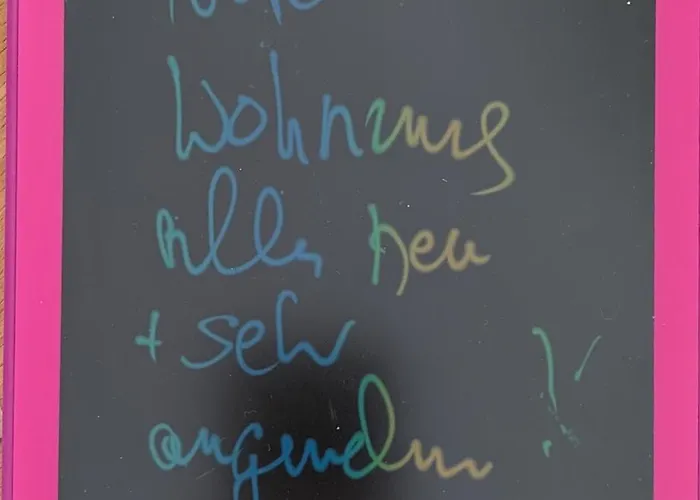 Wohnung
Alles neu
+ sehr
angenehm !